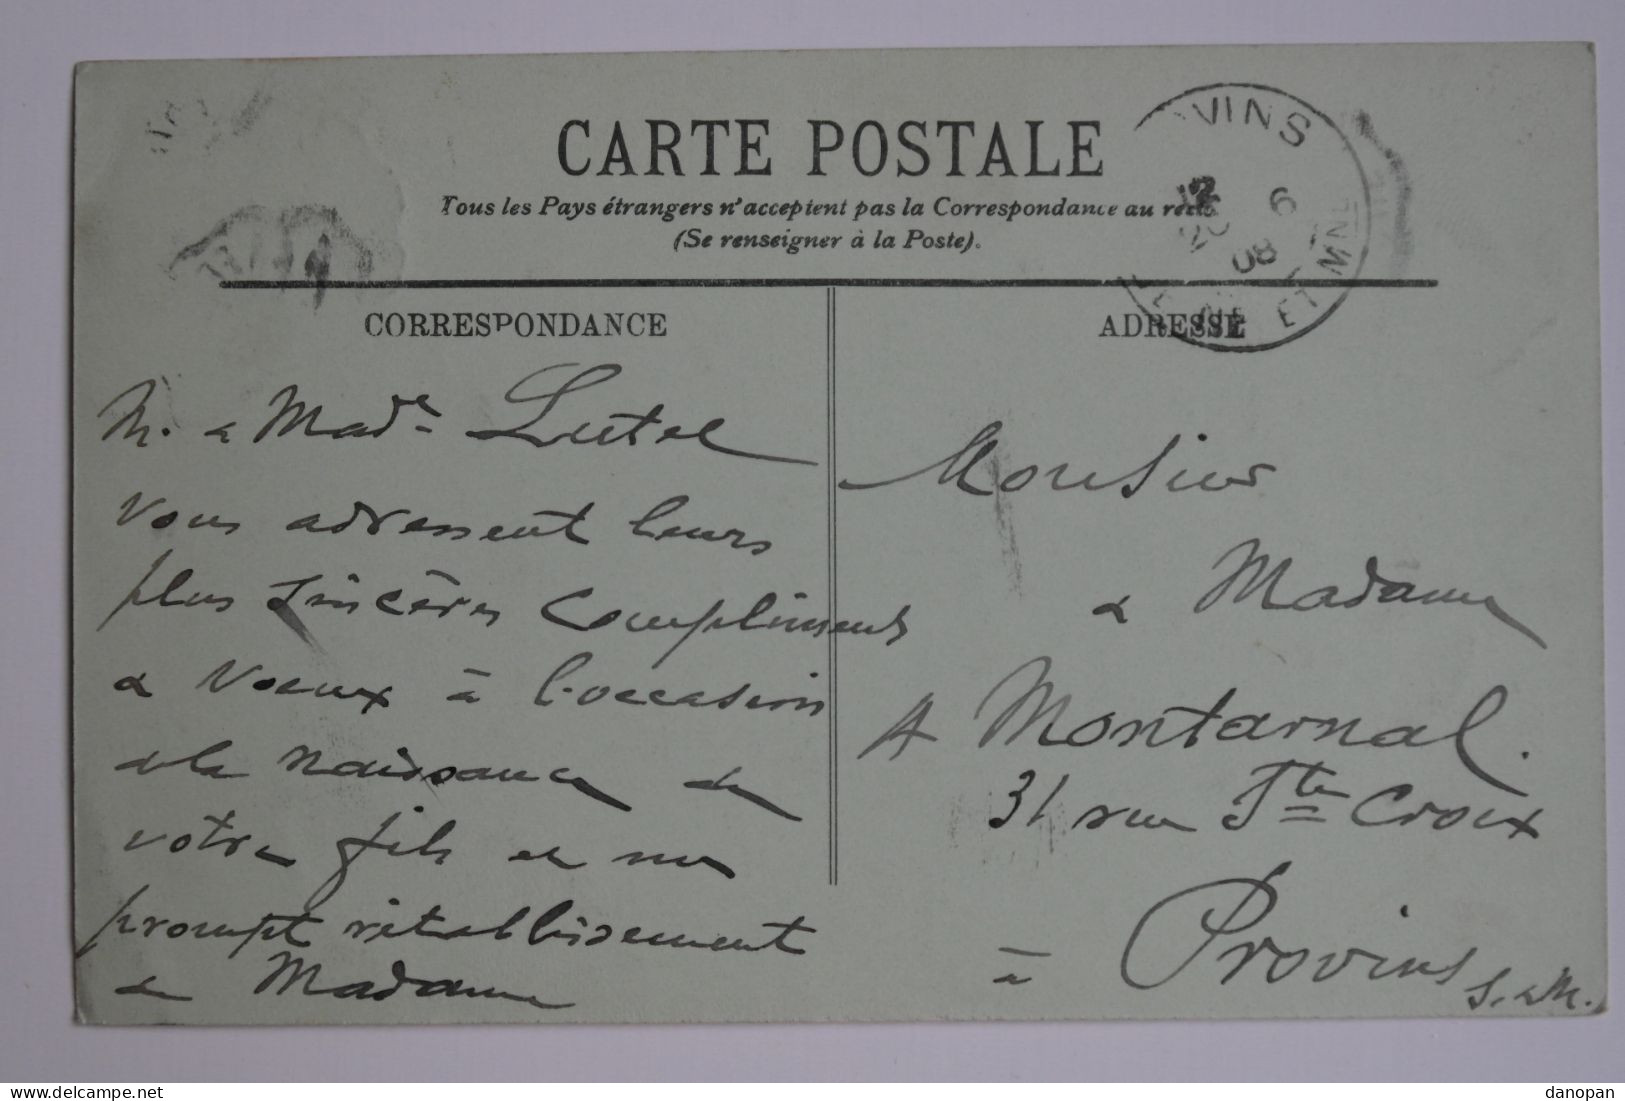 CARTE POSTALE
Tous les Pays étrangers n'acceptent pas la Correspondance au recto
(Se renseigner à la Poste).
VINS
6
08
ET MNE
CORRESPONDANCE
M. & Made Lutel
vous adressent leurs
plus sincères compliments
& voeux à l'occasion
de la naissance de
votre fils et un
prompt rétablissement
de Madame
ADRESSE
Monsieur
& Madame
A Montarnal.
31 rue Ste Croix
à Provins
S. & M.
delcampe.net
danopan